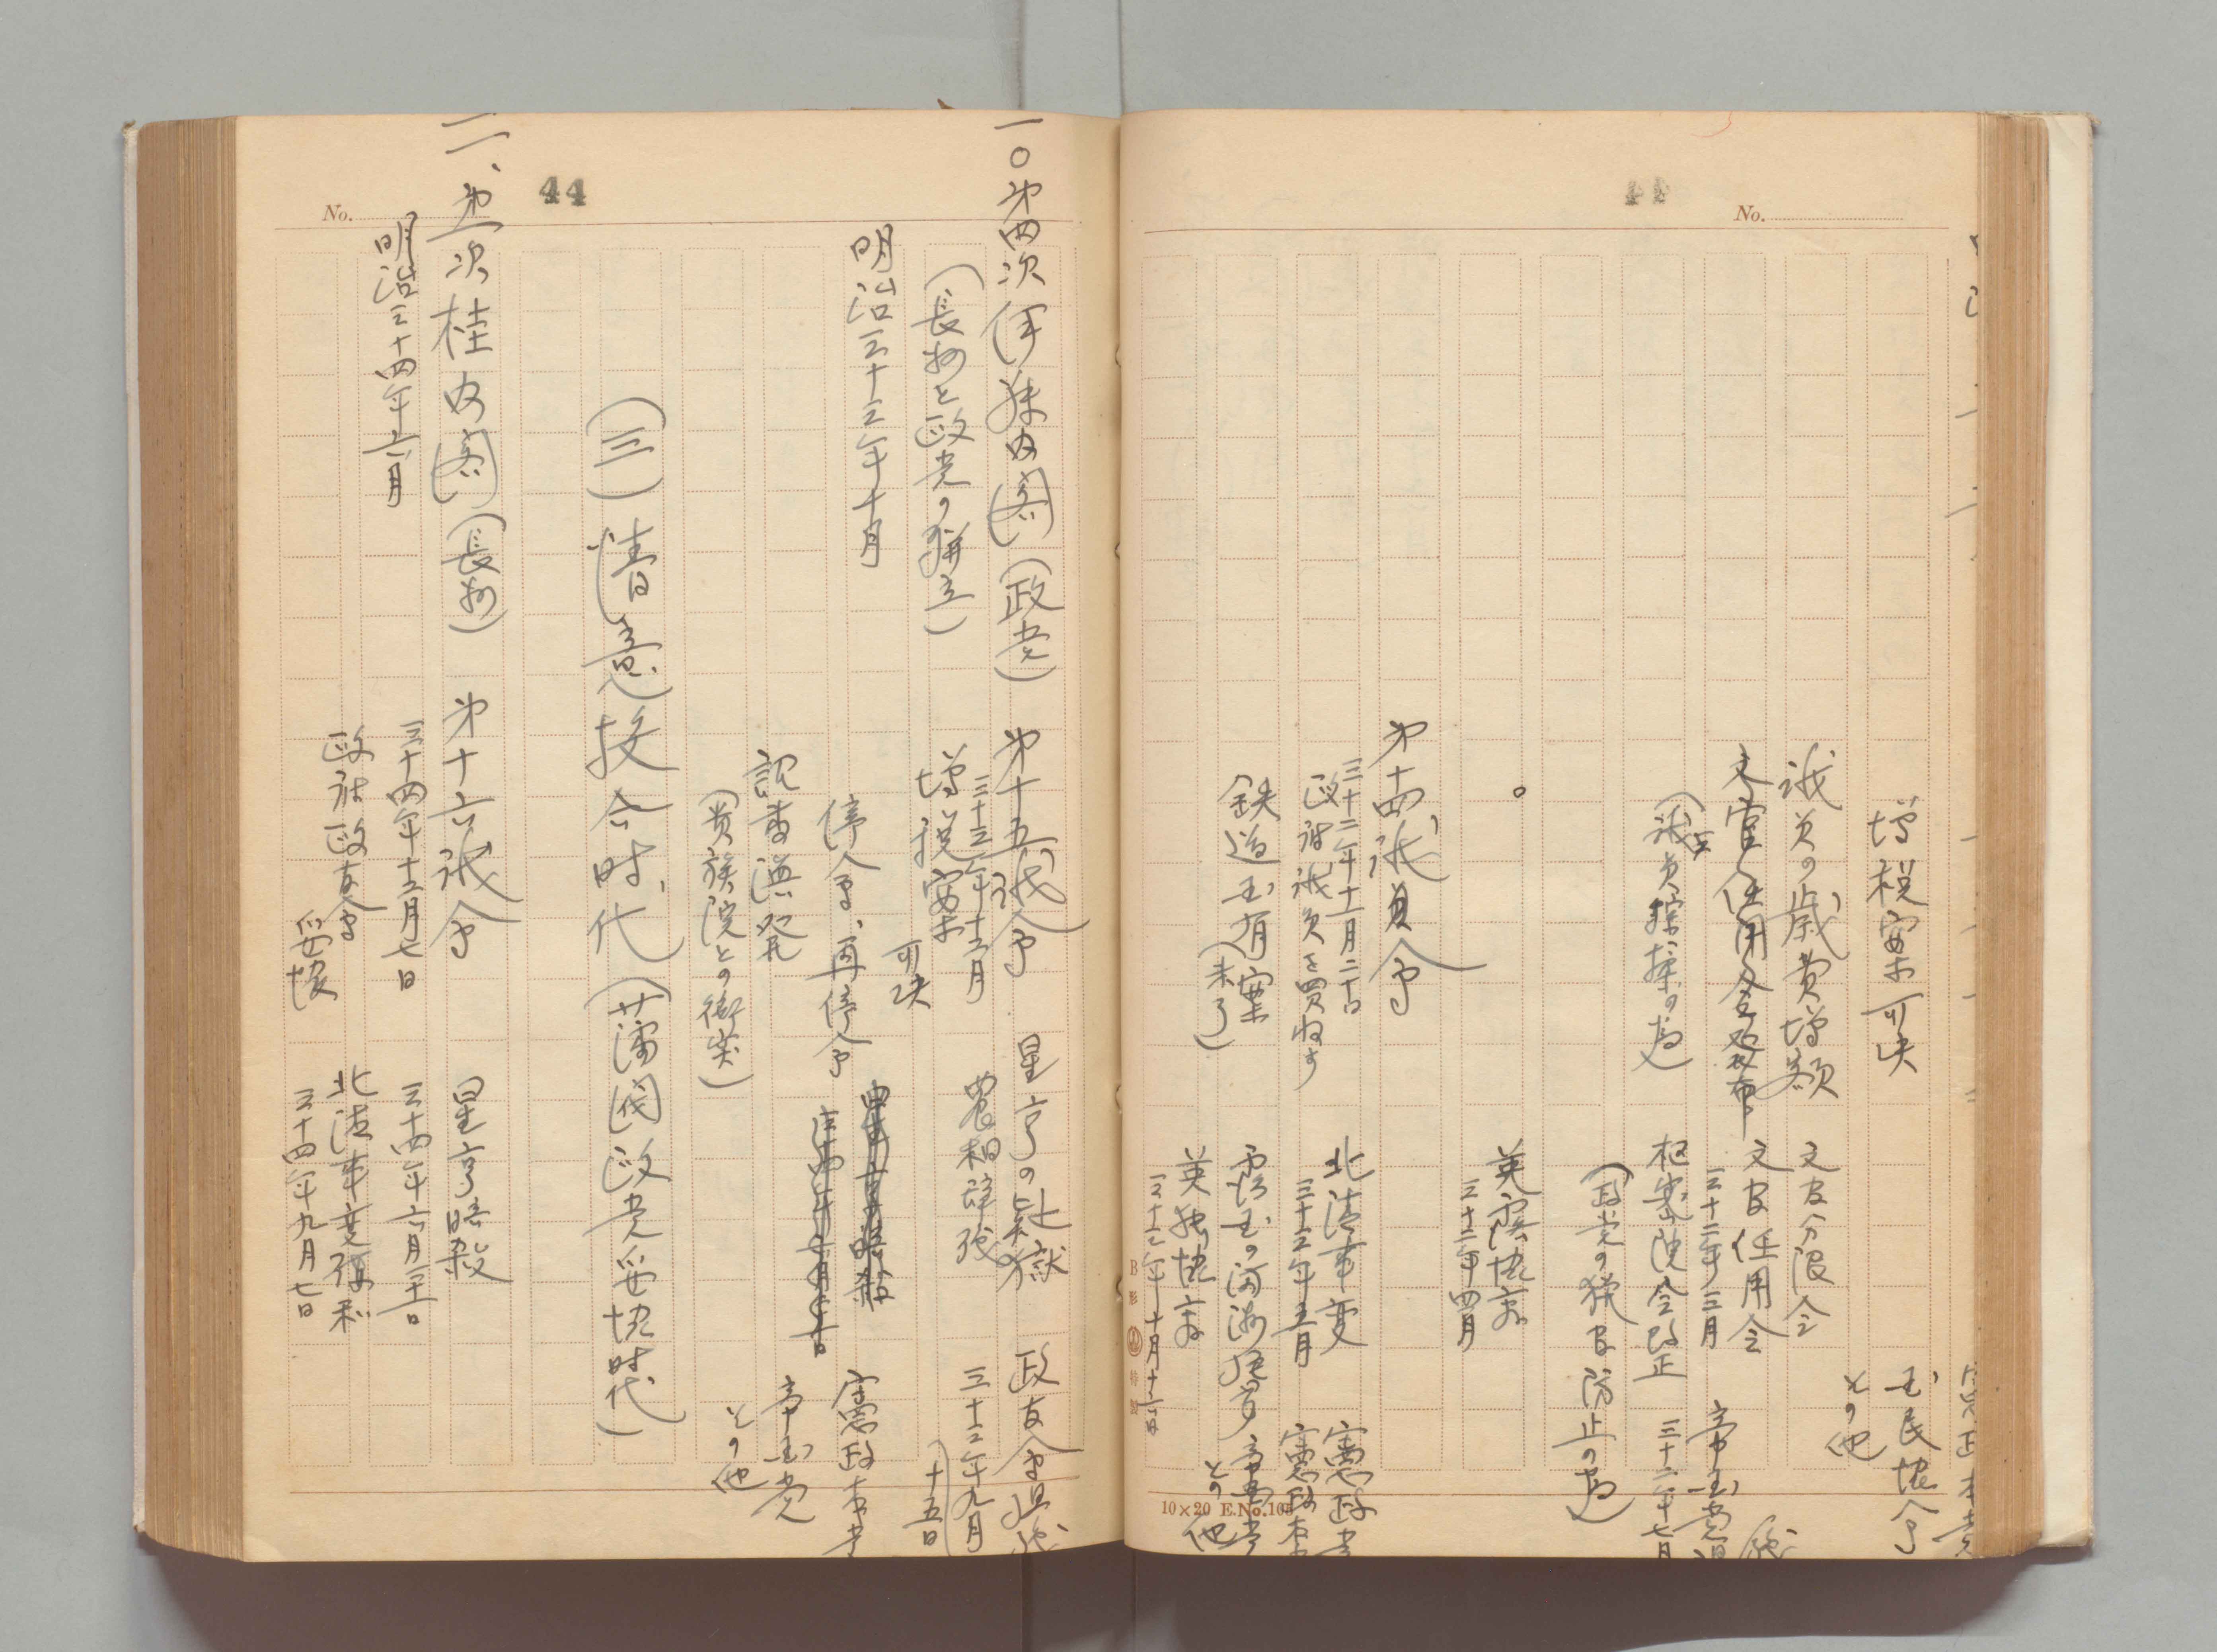 No.
増税案可決
国民協会
その他
議員の歳費増額
文官分限令
文官任用令発布
文官任用令
三十二年三月
帝国党
(議員操縦の為)
枢密院令改正
三十二年七月
(政党の猟官防止の為)
英露協商
三十二年四月
第十四議会
三十二年十一月二十日
政府議員を買収す
北清事変
三十三年五月
憲政党
憲政本党
鉄道国有案
(未了)
露国の満洲侵略
帝国党
その他
英独協商
三十三年十月十六日
10×20 E.No.105
44
No.
一〇第四次伊藤内閣(政党)
第十五議会
星亨の疑獄
政友会組織
(長州と政党の併立)
三十三年十二月
増税案
可決
農相辞職
三十三年九月
十五日
明治三十三年十月
停会、再停会
星亨暗殺
憲政本党
詔書渙発
帝国党
(貴族院との衝突)
その他
(三)情意投合時代(藩閥政党妥協時代)
一一、第一次桂内閣(長州)
第十六議会
星亨暗殺
明治三十四年六月
三十四年十二月七日
三十四年六月二十一日
政府政友会
妥協
北清事変講和
三十四年九月七日